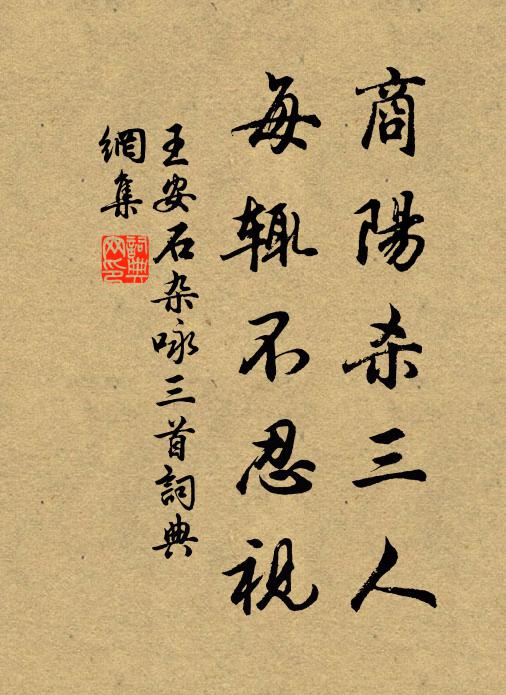 商陽杀三人
每辄不忍视
王安石杂咏三首詞典
網集
詞典
网印